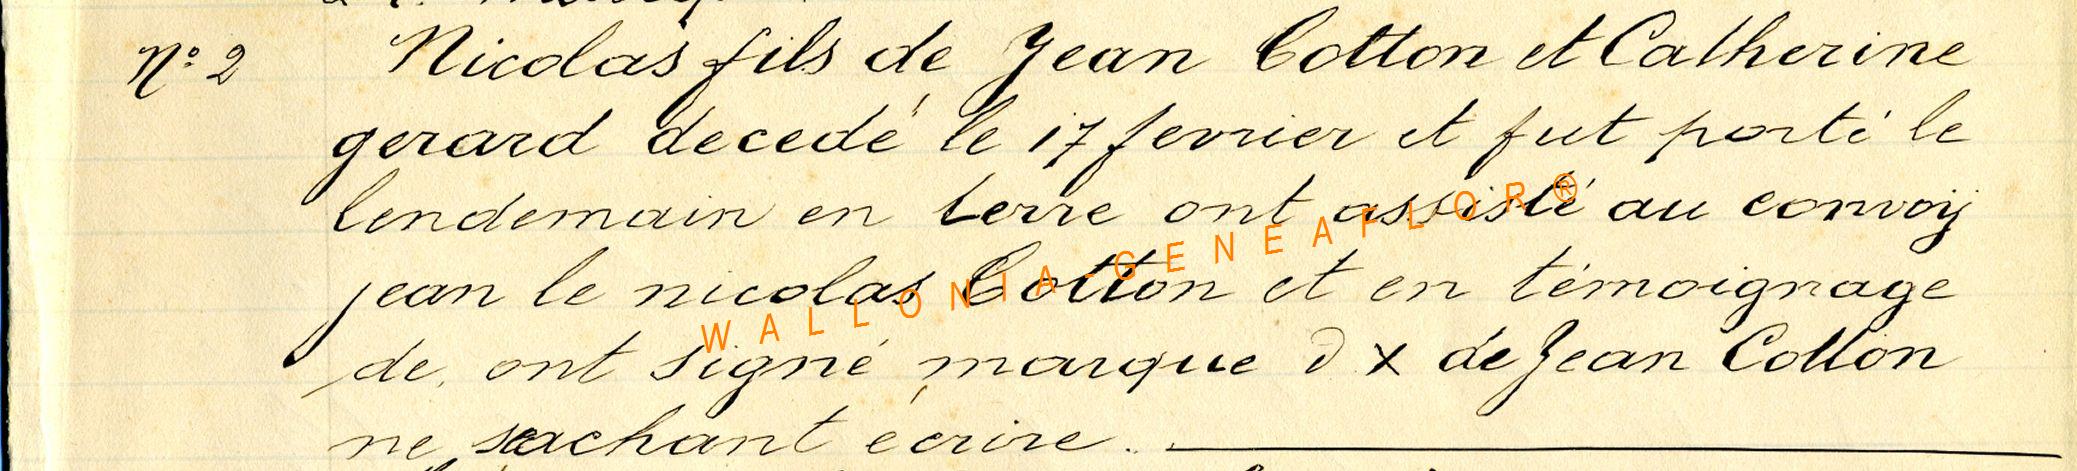 N° 2 Nicolas fils de Jean Cotton et Catherine
gerard decedé le 17 fevrier et fut porté le
lendemain en terre ont assisté au convoÿ
jean le nicolas Cotton et en témoignage
de ont signé marque X de Jean Cotton
ne sachant écrire.
WALLONIA-GENEAFLOR®